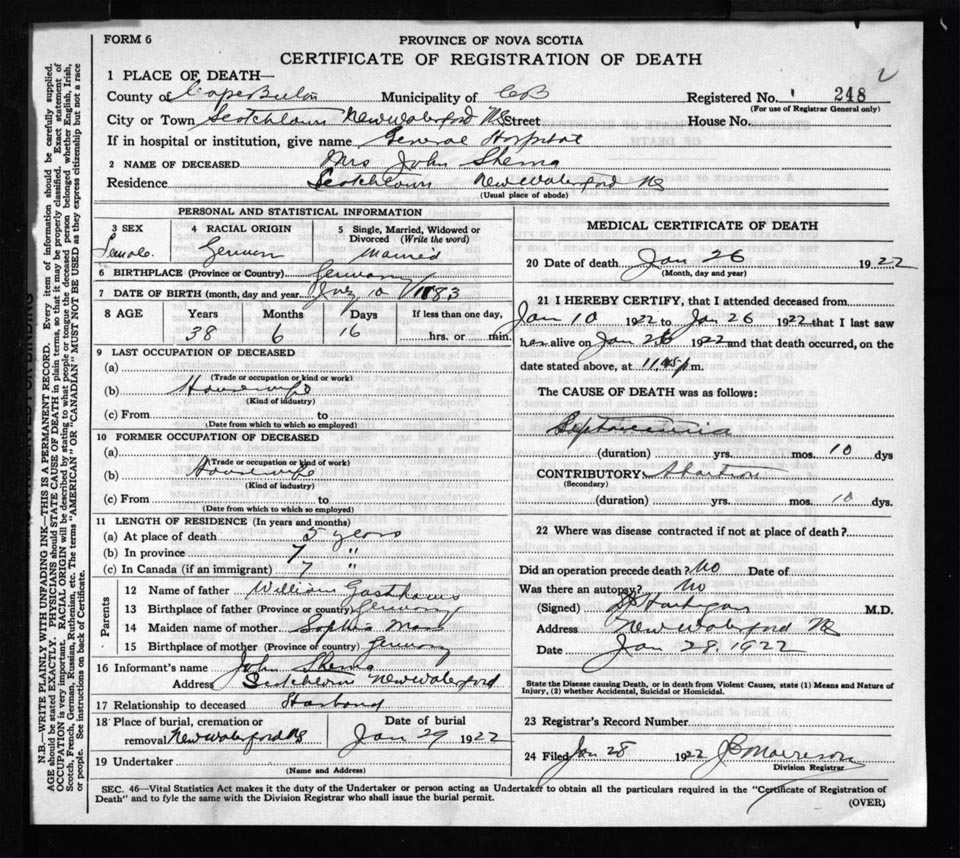 FORM 6
PROVINCE OF NOVA SCOTIA
CERTIFICATE OF REGISTRATION OF DEATH
1 PLACE OF DEATH—
County of Cape Breton Municipality of CB Registered No. 248
(For use of Registrar General only)
City or Town Scotchtown New Waterford NS Street House No.
If in hospital or institution, give name General Hospital
2 NAME OF DECEASED Mrs John Shema
Residence Scotchtown New Waterford NS
(Usual place of abode)
PERSONAL AND STATISTICAL INFORMATION
3 SEX 4 RACIAL ORIGIN 5 Single, Married, Widowed or Divorced (Write the word)
Female German Married
6 BIRTHPLACE (Province or Country) Germany
7 DATE OF BIRTH (month, day and year 10 1883
8 AGE Years Months Days If less than one day,
38 6 16 hrs. or min.
9 LAST OCCUPATION OF DECEASED
(a)
(Trade or occupation or kind or work)
(b) Housewife
(Kind of industry)
(c) From to
(Date from which to which so employed)
10 FORMER OCCUPATION OF DECEASED
(a)
(Trade or occupation or kind or work)
(b) Housewife
(Kind of industry)
(c) From to
(Date from which to which so employed)
11 LENGTH OF RESIDENCE (In years and months)
(a) At place of death 5 years
(b) In province 7 "
(c) In Canada (if an immigrant) 7 "
Parents
12 Name of father William Gasthaus
13 Birthplace of father (Province or country) Germany
14 Maiden name of mother Sophia
15 Birthplace of mother (Province or country) Germany
16 Informant's name John Shema
Address Scotchtown New Waterford
17 Relationship to deceased Husband
18 Place of burial, cremation or removal New Waterford NS Date of burial Jan 29 1922
19 Undertaker
(Name and Address)
MEDICAL CERTIFICATE OF DEATH
20 Date of death Jan 26 1922
(Month, day and year)
21 I HEREBY CERTIFY, that I attended deceased from
Jan 10 1922 to Jan 26 1922 that I last saw
her alive on Jan 26 1922 and that death occurred, on the
date stated above, at 11.45 p m.
The CAUSE OF DEATH was as follows:
Septicaemia
(duration) yrs. mos. 10 dys
CONTRIBUTORY Abortion
(Secondary)
(duration) yrs. mos. 10 dys.
22 Where was disease contracted if not at place of death?
Did an operation precede death? No Date of
Was there an autopsy? No
(Signed) Hartigan M.D.
Address New Waterford NS
Date Jan 28, 1922
State the Disease causing Death, or in death from Violent Causes, state (1) Means and Nature of
Injury, (2) whether Accidental, Suicidal or Homicidal.
23 Registrar's Record Number
24 Filed Jan 28 1922 Morrison
Division Registrar
SEC. 46—Vital Statistics Act makes it the duty of the Undertaker or person acting as Undertaker to obtain all the particulars required in the "Certificate of Registration of
Death" and to fyle the same with the Division Registrar who shall issue the burial permit.
(OVER)
N.B.—WRITE PLAINLY WITH UNFADING INK—THIS IS A PERMANENT RECORD. Every item of information should be carefully supplied.
AGE should be stated EXACTLY. PHYSICIANS should STATE CAUSE OF DEATH in plain terms, so that it may be properly classified. Exact statement of
OCCUPATION is very important. RACIAL ORIGIN will be described by stating to what people or tongue the deceased person belonged whether English, Irish,
Scotch, French, German, Russian, Ruthenian, etc. The terms "AMERICAN" OR "CANADIAN" MUST NOT BE USED as they express citizenship but not a race
or people. See instructions on back of Certificate.